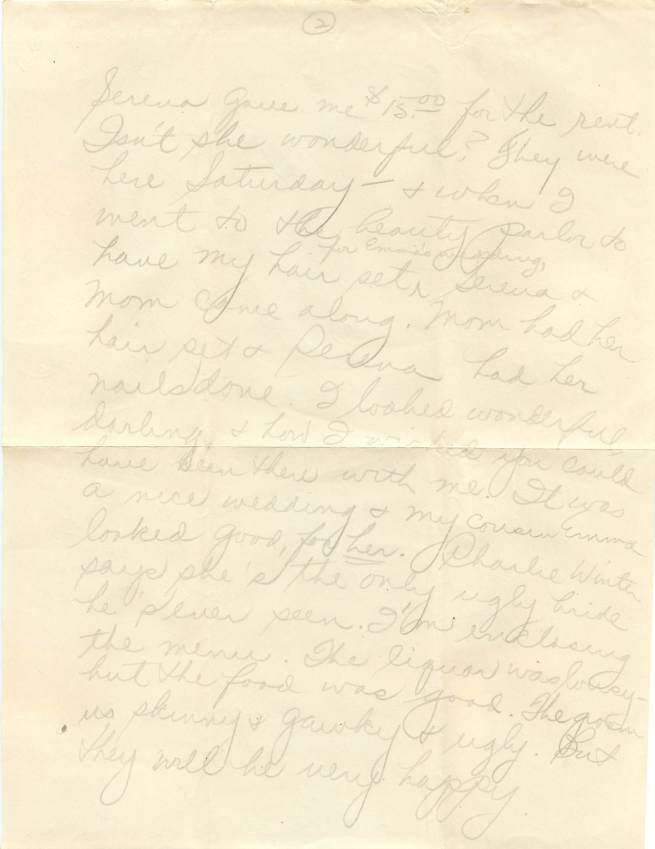 2
Serena gave me $15.00 for the rent.
Isn't she wonderful? They were
here Saturday - & when I
went to the beauty parlor to
for Emma's wedding,
have my hair set, Serena &
Mom came along. Mom had her
hair set & Serena had her
nails done. I looked wonderful
darling, & how I wished you could
have been there with me. It was
a nice wedding & my cousin Emma
looked good, for her. Charlie Winter
says she's the only ugly bride
he's ever seen. I'm enclosing
the menu. The liquor was lousy -
but the food was good. The groom
is skinny & gawky & ugly. But
they will be very happy